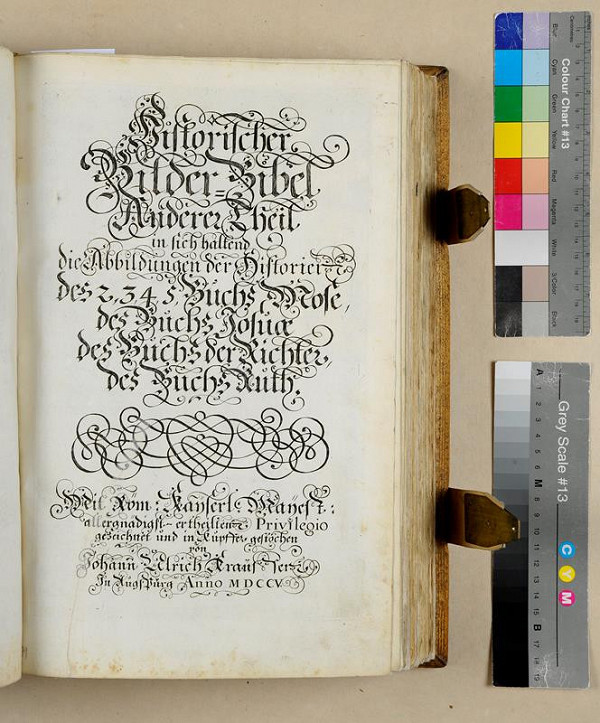 Historischer
Bilder-Bibel
Anderer Theil
in sich haltend
die Abbildungen der Historien
des 2, 3 4 5 Buchs Mose,
des Buchs Josuæ
des Buchs der Richter,
des Buchs Ruth.
Mit Röm: Kayserl: Mayest:
allergnädigst-ertheilten Privilegio
gezeichnet und in Kupffer gestochen
von
Johann Ulrich Krauſsen
In Augspurg Anno MDCCV
Colour Chart #13
Blue
Cyan
Green
Yellow
Red
Magenta
White
3/Color
Black
Grey Scale #13
A 1 2 3 4 5 6 M 8 9 10 11 12 13 14 15 B 17 18 19
C Y M